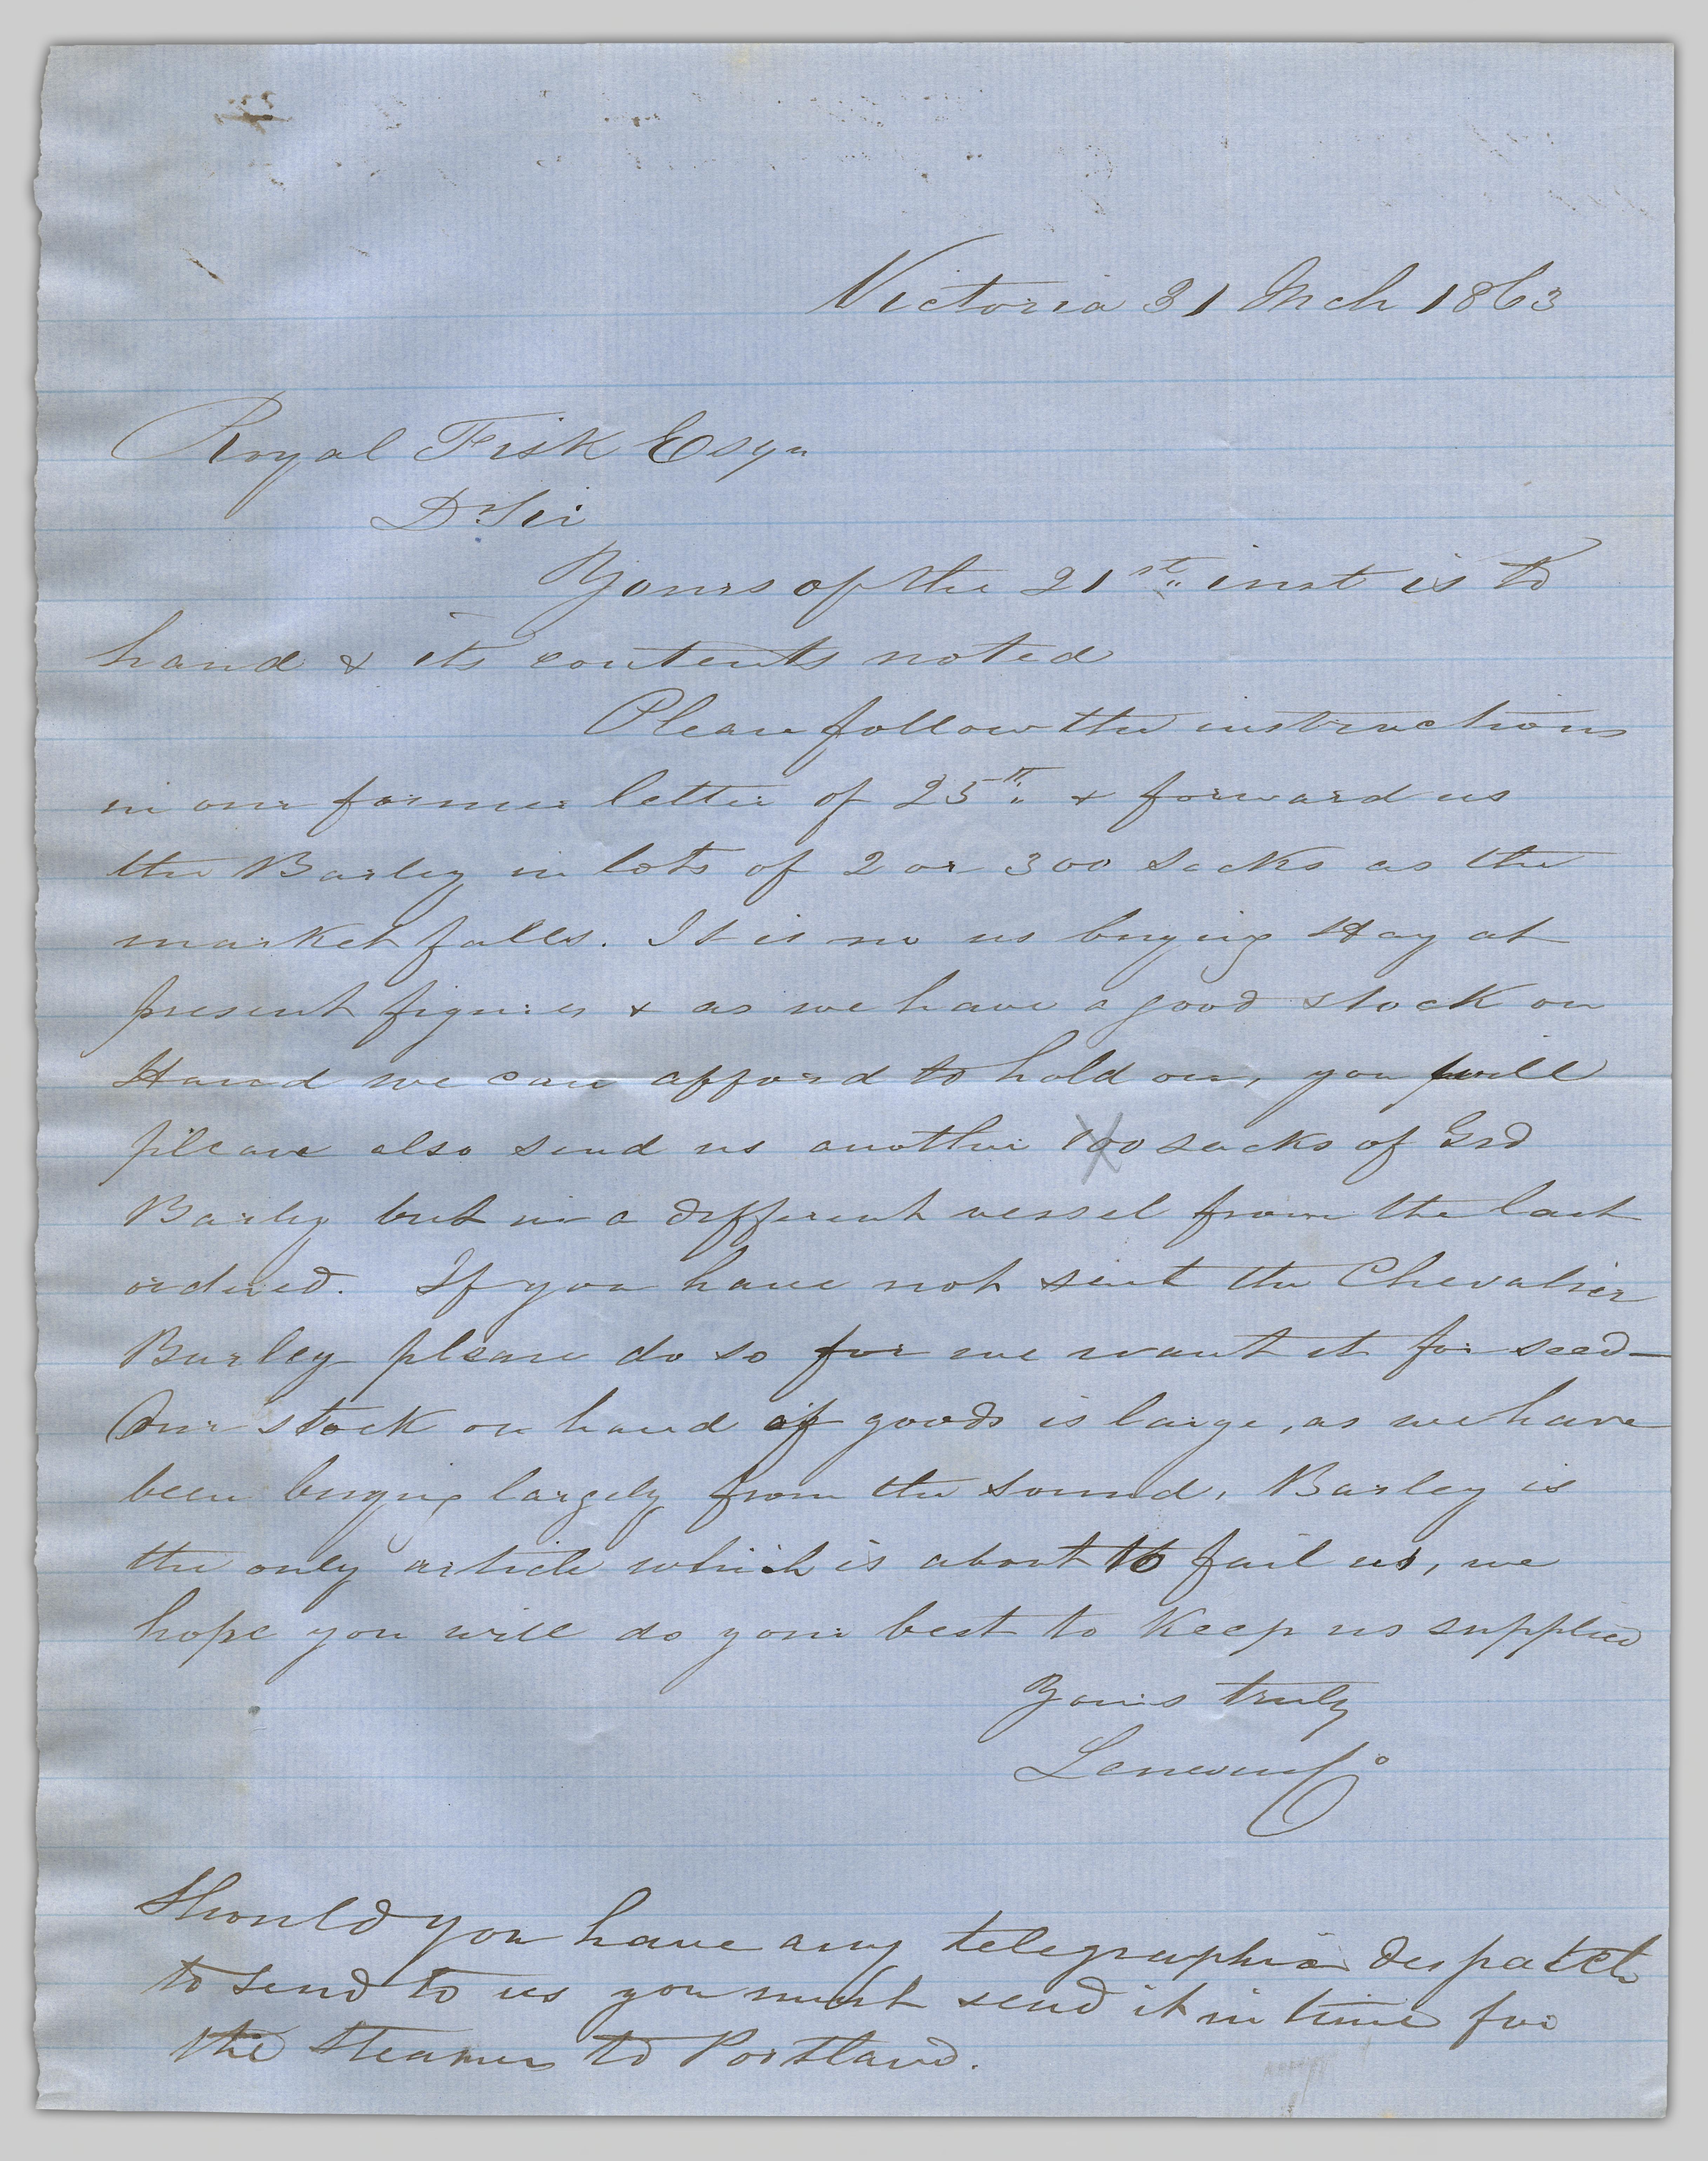 Victoria 31 Mch 1863
Royal Fisk Esqr
Dr Sir
Yours of the 21st inst is to
hand & its contents noted
Please follow the instructions
in our former letter of 25th & forward us
the Barley in lots of 2 or 300 sacks as the
market falls. It is no us buying Hay at
present figures & as we have a good stock on
Hand we can afford to hold on, you will
please also send us another 100 sacks of Grd
Barley but in a different vessel from the last
ordered. If you have not sent the Chevalier
Barley please do so for we want it for seed—
Our stock on hand of goods is large, as we have
been buying largely from the Sound, Barley is
the only article which is about to fail us, we
hope you will do your best to keep us supplied
Yours truly
Should you have any telegraphic despatch
to send to us you must send it in time for
the Steamer to Portland.